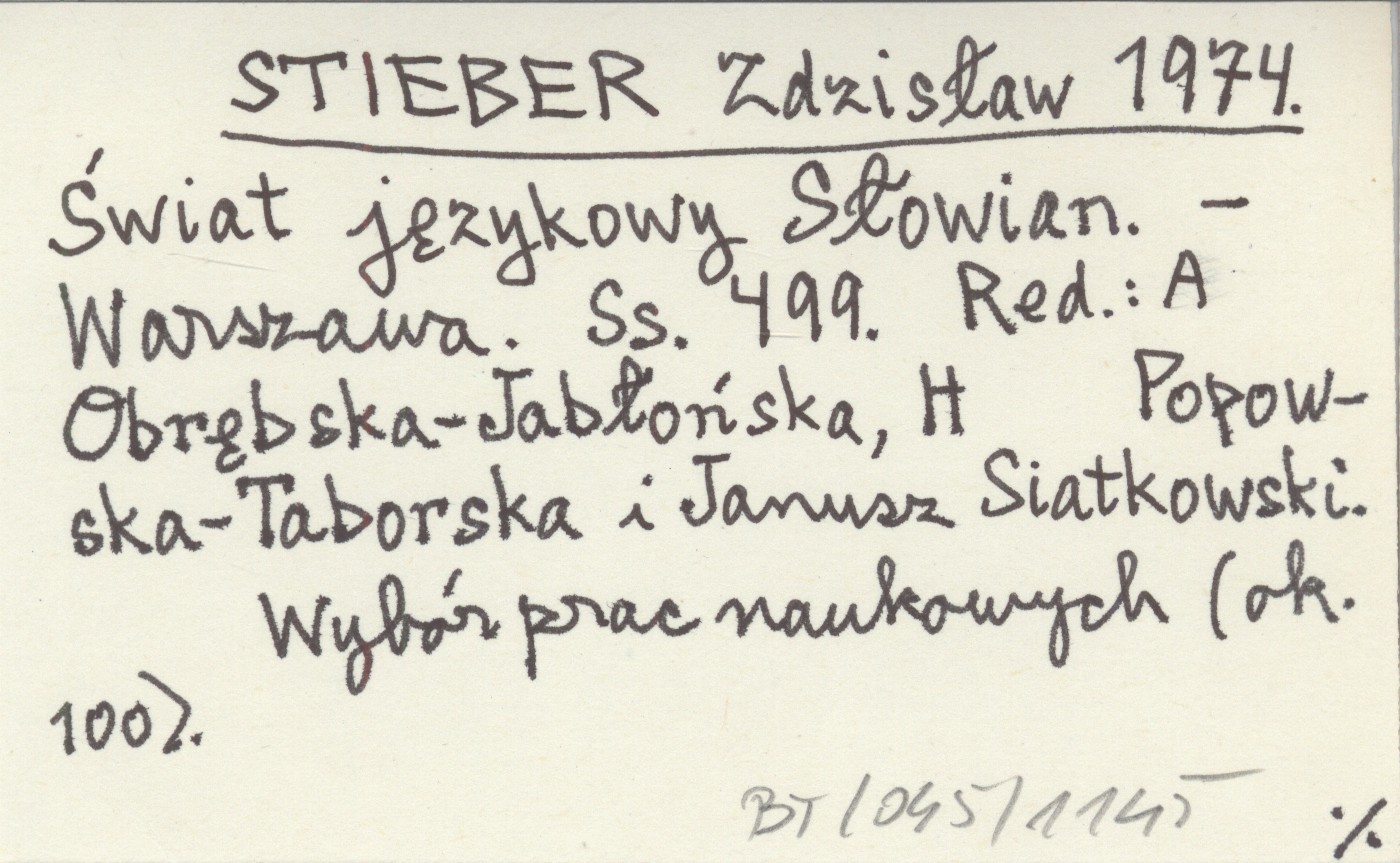 STIEBER Zdzisław 1974.
Świat językowy Słowian. –
Warszawa. Ss. 499. Red.: A
Obrębska-Jabłońska, H Popow-
ska-Taborska i Janusz Siatkowski.
Wybór prac naukowych (ok.
100).
BT/045/1145
·/.